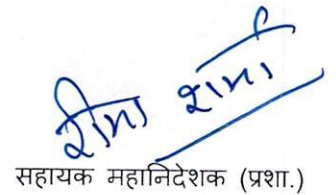 रीना शर्मा
सहायक महानिदेशक (प्रशा.)